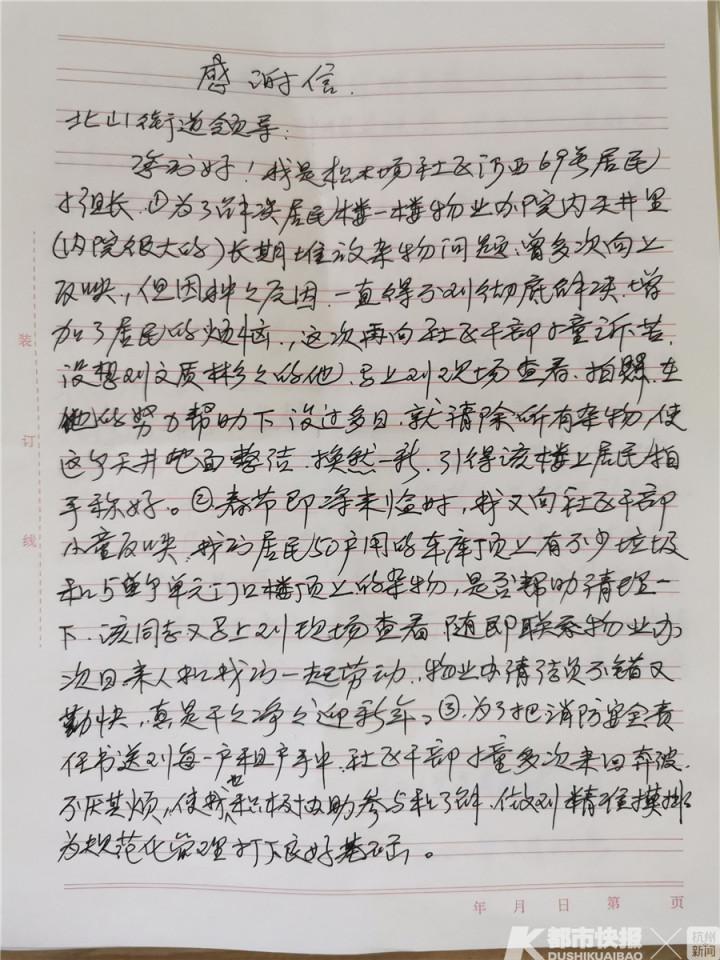 感谢信.
北山街道领导:
您们好!我是松木场社区河西69号居民
小组长.①为了解决居民楼一楼物业办院内天井里
(内院很大的)长期堆放杂物问题,曾多次向上
反映,但因种々原因.一直得不到彻底解决.增
加了居民的烦恼.,这次再向社区干部小童诉苦.
没想到文质彬々的他,马上到现场查看.拍照.在
他的努力帮助下没过多日.就清除所有杂物,使
这个天井地面整洁.换然一新.引得该楼上居民拍
手称好。②春节即将来临时,我又向社区干部
小童反映.我们居民50户用的车库顶上有不少垃圾
和5单个单元门口楼顶上的杂物,是否帮助清理一
下.该同志又马上到现场查看.随即联系物业办
次日来人和我们一起劳动.,物业办清洁员不错又
勤快,真是干々净々迎新年。③.为了把消防安全责
任书送到每一户租户手中.社区干部小童多次来回奔波.
不厌其烦,使我也积极协助参与和了解.做到精准摸排
为规范化管理打下良好基础。
装
订
线
年 月 日 第 页
都市快报
DUSHIKUAIBAO
杭州
新闻